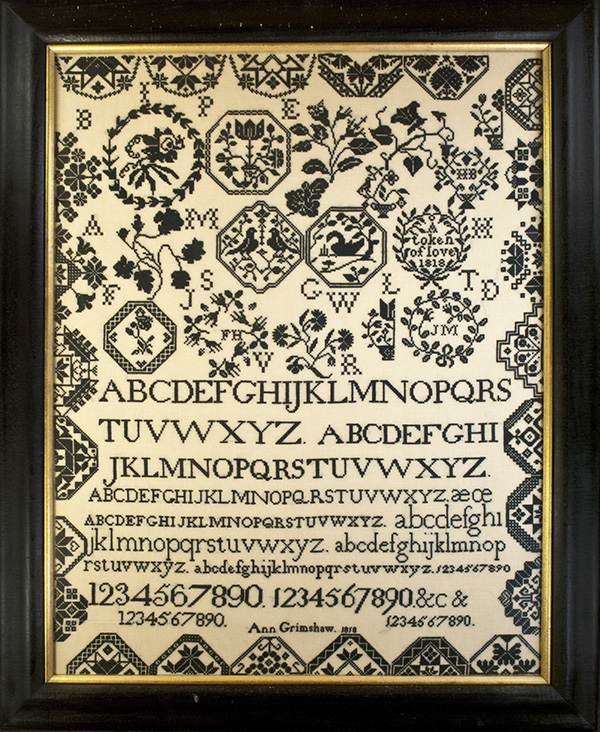 B I P E
HB
A M H
A
token
of love
1818
F J S C W L T D
FH V R JM
ABCDEFGHIJKLMNOPQRS
TUVWXYZ. ABCDEFGHI
JKLMNOPQRSTUVWXYZ.
ABCDEFGHIJKLMNOPQRSTUVWXYZ. æ œ
ABCDEFGHIJKLMNOPQRSTUVWXYZ. abcdefghi
jklmnopqrstuvwxyz. abcdefghijklmnop
rstuvwxyz. abcdefghijklmnopqrstuvwxyz. 1234567890
1234567890. 1234567890. &c &
1234567890. Ann Grimshaw. 1818 1234567890.